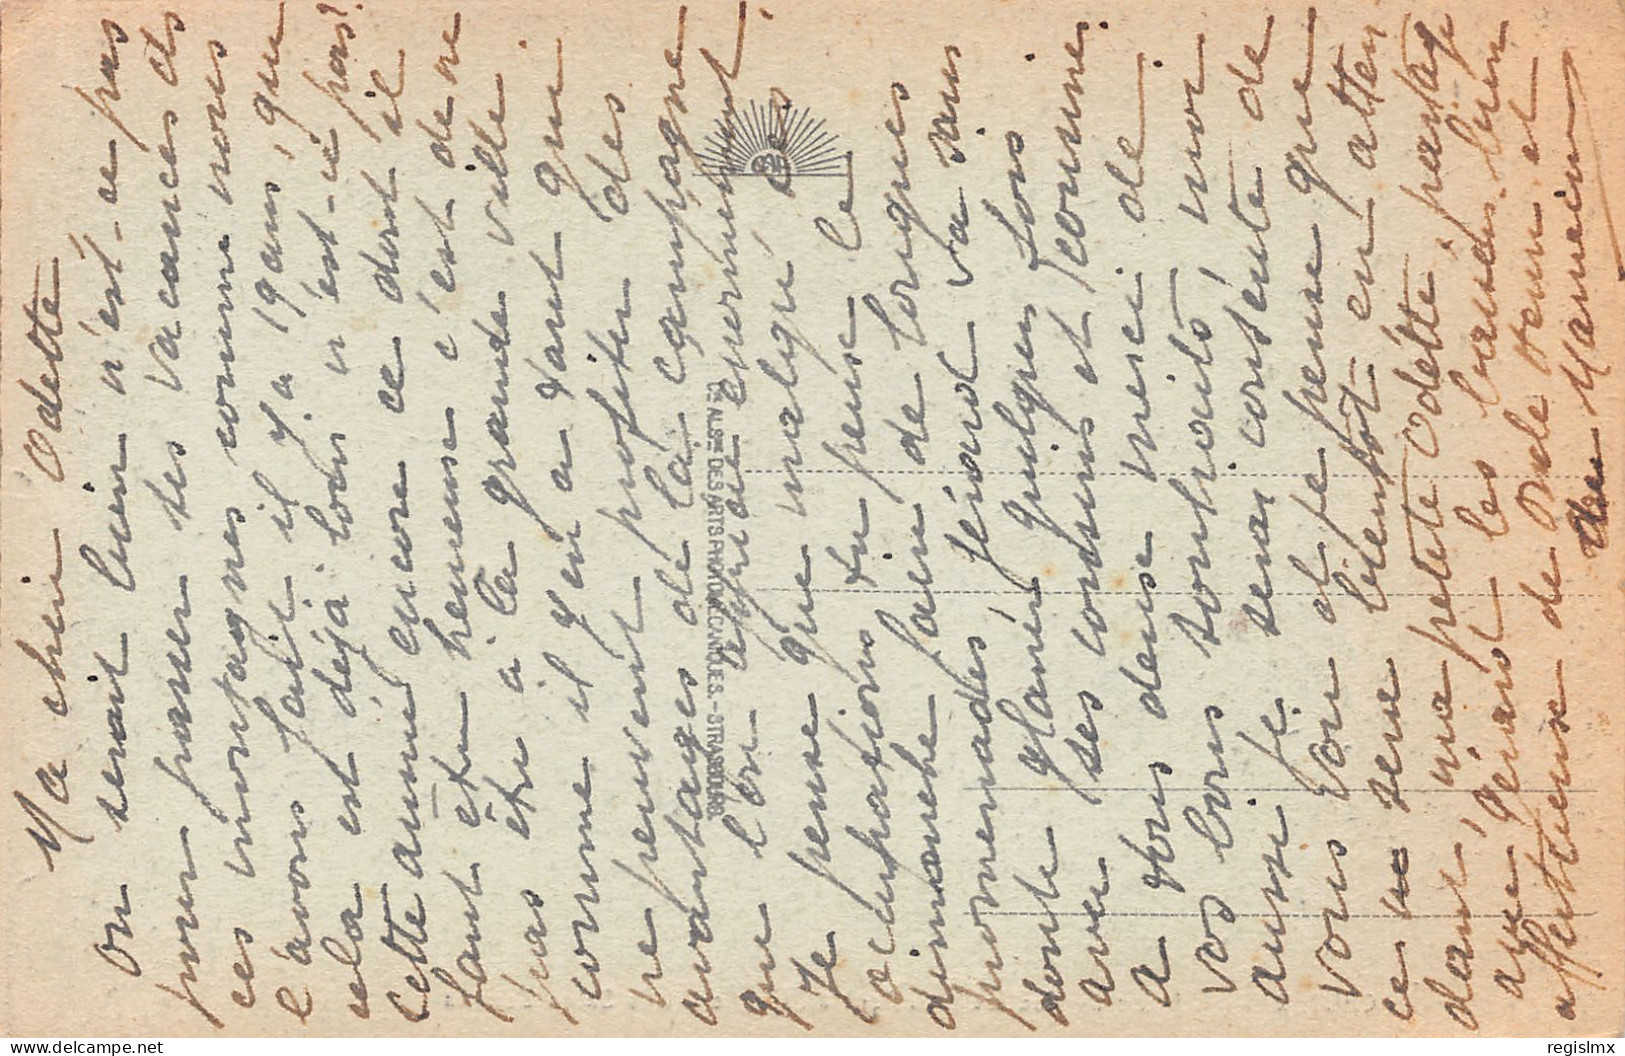 Ma cher Odette
on serait bien n'est-ce pas
pour passer ses vacances ds
ces montagnes comme nous
l'avons fait il y a 19 ans, que
cela est déjà loin n'est-ce pas?
Cette année encore ce dont il
faut être heureuse c'est de ne
pas être à la grande ville
comme il y en a tant qui
ne peuvent profiter des
avantages de la campagne
que l'on apprécie énormément.
Je pense que malgré tes
occupations tu penses le
dimanche faire de longues
promenades, Fernand va sans
doute glaner quelques fois
avec ses cousins et cousines.
A tous deux merci de
vos bons souhaits, mon
aussi je serai contente de
vous voir et je pense que
ce sera bientôt en atten
dant, ma petite Odette, partage
avec Fernand les bonnes
affectueuse de oncle et
Marraine
CIE ALSAC. DES ARTS PHOTOMÉCANIQUES. - STRASBOURG
regislmx